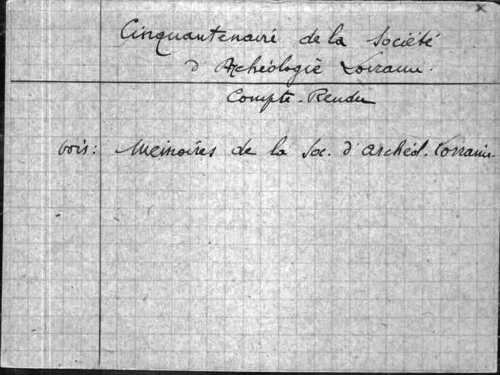 Cinquantenaire de la Société
d'Archéologie Lorraine.
Compte-Rendu
vois: Mémoires de la Soc. d'archéol. Lorraine